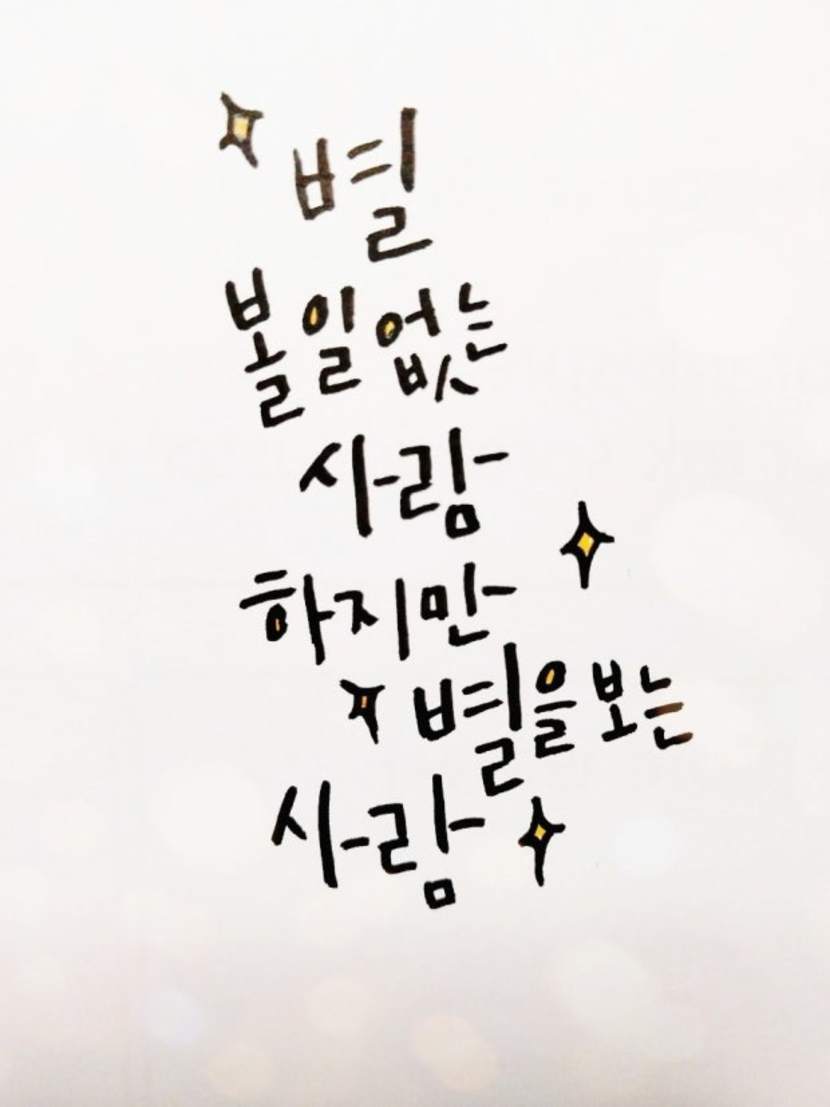 별
볼일없는
사람
하지만
별을보는
사람